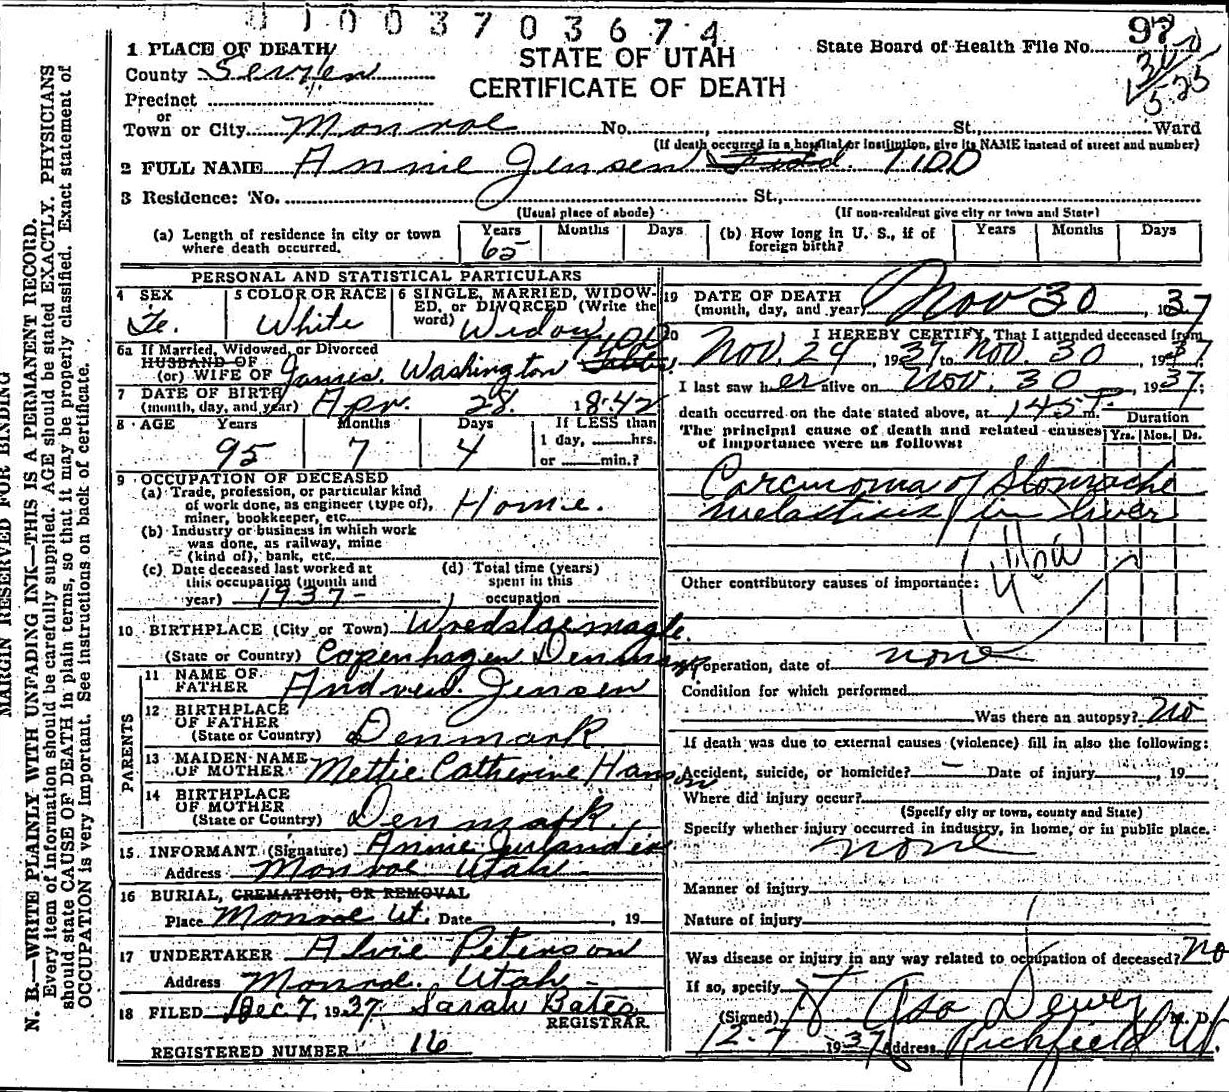 01003703674
97
STATE OF UTAH
CERTIFICATE OF DEATH
State Board of Health File No.
1 PLACE OF DEATH
County Sevier
Precinct
or
Town or City Monroe No. , St., Ward
(If death occurred in a hospital or institution, give its NAME instead of street and number)
2 FULL NAME Annie Jensen TIDD
3 Residence: No. St.,
(Usual place of abode) (If non-resident give city or town and State)
(a) Length of residence in city or town where death occurred. Years 65 Months Days
(b) How long in U. S., if of foreign birth? Years Months Days
PERSONAL AND STATISTICAL PARTICULARS
4 SEX Fe.
5 COLOR OR RACE White
6 SINGLE, MARRIED, WIDOWED, or DIVORCED (Write the word) Widow
6a If Married, Widowed, or Divorced
HUSBAND OF
(or) WIFE OF James Washington TIDD
7 DATE OF BIRTH
(month, day, and year) Apr. 28 1842
8 AGE Years 95 Months 7 Days 4 If LESS than
1 day, hrs.
or min.?
9 OCCUPATION OF DECEASED
(a) Trade, profession, or particular kind
of work done, as engineer (type of),
miner, bookkeeper, etc. Home.
(b) Industry or business in which work
was done, as railway, mine
(kind of), bank, etc.
(c) Date deceased last worked at
this occupation (month and
year) 1937
(d) Total time (years)
spent in this
occupation
10 BIRTHPLACE (City or Town)
(State or Country) Copenhagen Denmark
PARENTS
11 NAME OF
FATHER Andrew Jensen
12 BIRTHPLACE
OF FATHER
(State or Country) Denmark
13 MAIDEN NAME
OF MOTHER Mettie Catherine Hanson
14 BIRTHPLACE
OF MOTHER
(State or Country) Denmark
15 INFORMANT (Signature) Annie
Address Monroe Utah
16 BURIAL, CREMATION, OR REMOVAL
Place Monroe Ut. Date , 19
17 UNDERTAKER Alvie Peterson
Address Monroe. Utah
18 FILED Dec 7, 1937 Sarah Bates
REGISTRAR
REGISTERED NUMBER 16
19 DATE OF DEATH
(month, day, and year) Nov 30, 1937
20 I HEREBY CERTIFY, That I attended deceased from
Nov. 29, 1937, to Nov. 30, 1937
I last saw her alive on Nov. 30, 1937;
death occurred on the date stated above, at 1:45 P. m.
The principal cause of death and related causes
of importance were as follows:
Duration
Yrs. Mos. Ds.
Carcinoma of Stomache
melastisis in liver
Other contributory causes of importance:
If operation, date of none
Condition for which performed
Was there an autopsy? No
If death was due to external causes (violence) fill in also the following:
Accident, suicide, or homicide? — Date of injury , 19
Where did injury occur?
(Specify city or town, county and State)
Specify whether injury occurred in industry, in home, or in public place.
none
Manner of injury
Nature of injury
Was disease or injury in any way related to occupation of deceased? No
If so, specify
(Signed) Asa Dewey M. D.
12-7 1937 Address Richfield Ut.
MARGIN RESERVED FOR BINDING
N. B.—WRITE PLAINLY WITH UNFADING INK—THIS IS A PERMANENT RECORD.
Every item of information should be carefully supplied. AGE should be stated EXACTLY. PHYSICIANS
should state CAUSE OF DEATH in plain terms, so that it may be properly classified. Exact statement of
OCCUPATION is very important. See instructions on back of certificate.